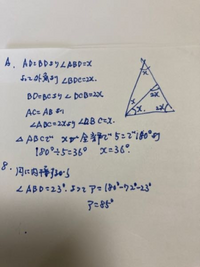 A. AD=BDより∠ABD=x
よって外角より∠BDC=2x.
BD=BCより∠DCB=2x
AC=ABより
∠ABC=2xより∠DBC=x.
△ABCで xが全部で5こで180°より
180°÷5=36° x=36°.
8. 円に内接するから
∠ABD=23°. よってア=180°-72°-23°
ア=85°
A
x
D
2x
x
x
2x